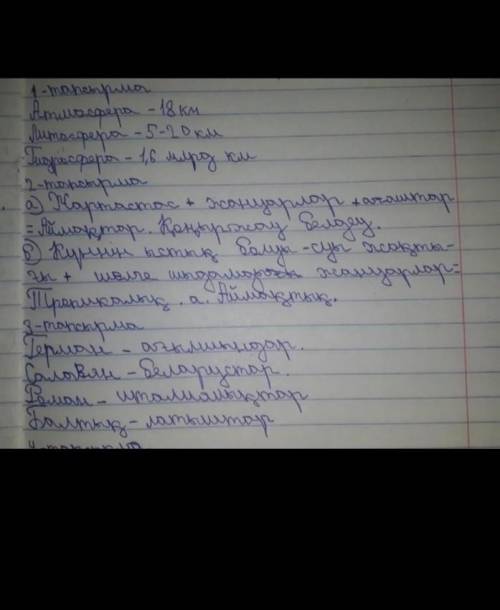 1-тапсырма
Атмосфера - 18 км
Литосфера - 5-20 км
Гидросфера - 1,6 млрд км
2-тапсырма
а) Жартастас + жануарлар + ағаштар
= Аймақтар. Қоңыржау белдеу.
б) Күннің ыстық болуы - суы жақты-
ғы + шөлге шыдамды жануарлар =
Тропикалық. а. Аймақтық.
3-тапсырма
Герман - ағылшындар.
Салавян - беларустар.
Роман - италиялықтар
Балтық - латыштар
4-тапсырма